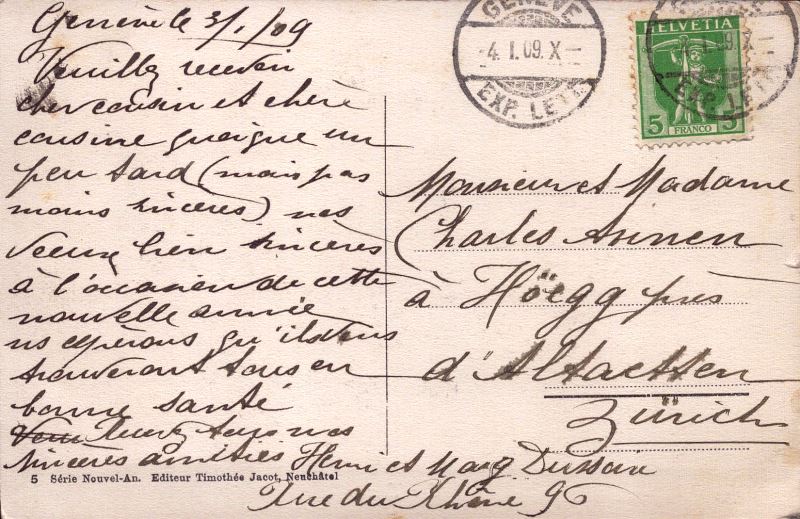 Genève le 3/1/09
Veuillez recevoir
cher cousin et chère
cousine quoique un
peu tard (mais pas
moins sincères) nos
voeux bien sincères
à l'occasion de cette
nouvelle année
ns espérons qu'ils vous
trouveront tous en
bonne santé
Recevez tous nos
sincères amitiés Henri et Marg
Rue du Rhône 96
5 Série Nouvel-An. Editeur Timothée Jacot, Neuchâtel
GENÈVE
-4. I. 09. X-
EXP. LETT.
HELVETIA
5 FRANCO 5
EXP. LETT.
Monsieur et Madame
Charles Asinen
à Höegg près
d'Altaetten
Zürich